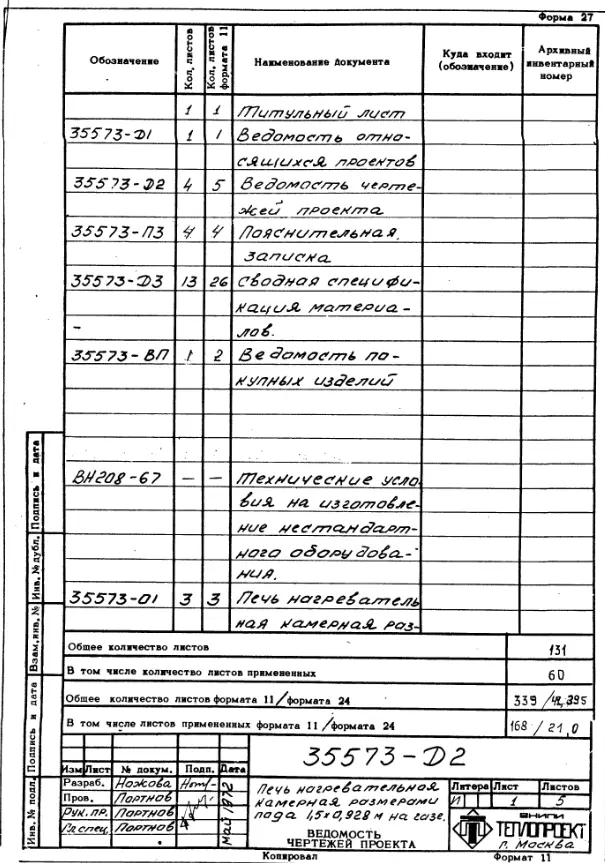 Форма 27
Обозначение Кол. листов Кол. листов формата 11 Наименование документа Куда входит (обозначение) Архивный инвентарный номер
1 1 Титульный лист
35573-Д1 1 1 Ведомость отно-
сящихся проектов
35573-Д2 4 5 Ведомость черте-
жей проекта
35573-ПЗ 4 4 Пояснительная
записка
35573-Д3 13 26 Сводная специфи-
кация материа-
- лов.
35573-ВП 1 2 Ведомость по-
купных изделий
ВН208-67 — — Технические усло-
вия на изготовле-
ние нестандарт-
ного оборудова-
ния.
35573-01 3 3 Печь нагреватель
ная камерная раз-
Общее количество листов 131
В том числе количество листов примененных 60
Общее количество листов формата 11/формата 24 339/42,395
В том числе листов примененных формата 11/формата 24 168/21,0
Инв. № подл. Подпись и дата Взам. инв. № Инв. № дубл. Подпись и дата
35573-Д2
Изм Лист № докум. Подп. Дата
Разраб. Ножкова
Пров. Портнов
Рук. пр. Портнов
Гл. спец. Портнов
май 1972
Печь нагревательная
камерная размерами
пода 1,5х0,928 м на газе.
ВЕДОМОСТЬ
ЧЕРТЕЖЕЙ ПРОЕКТА
Литера Лист Листов
И 1 5
ВНИПИ
ТЕПЛОПРОЕКТ
г. Москва
Копировал Формат 11